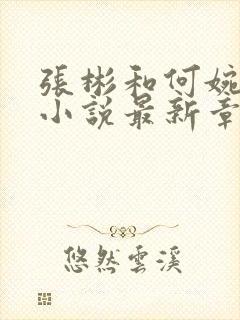 張彬和何婉
小說最新章
悠然雲溪